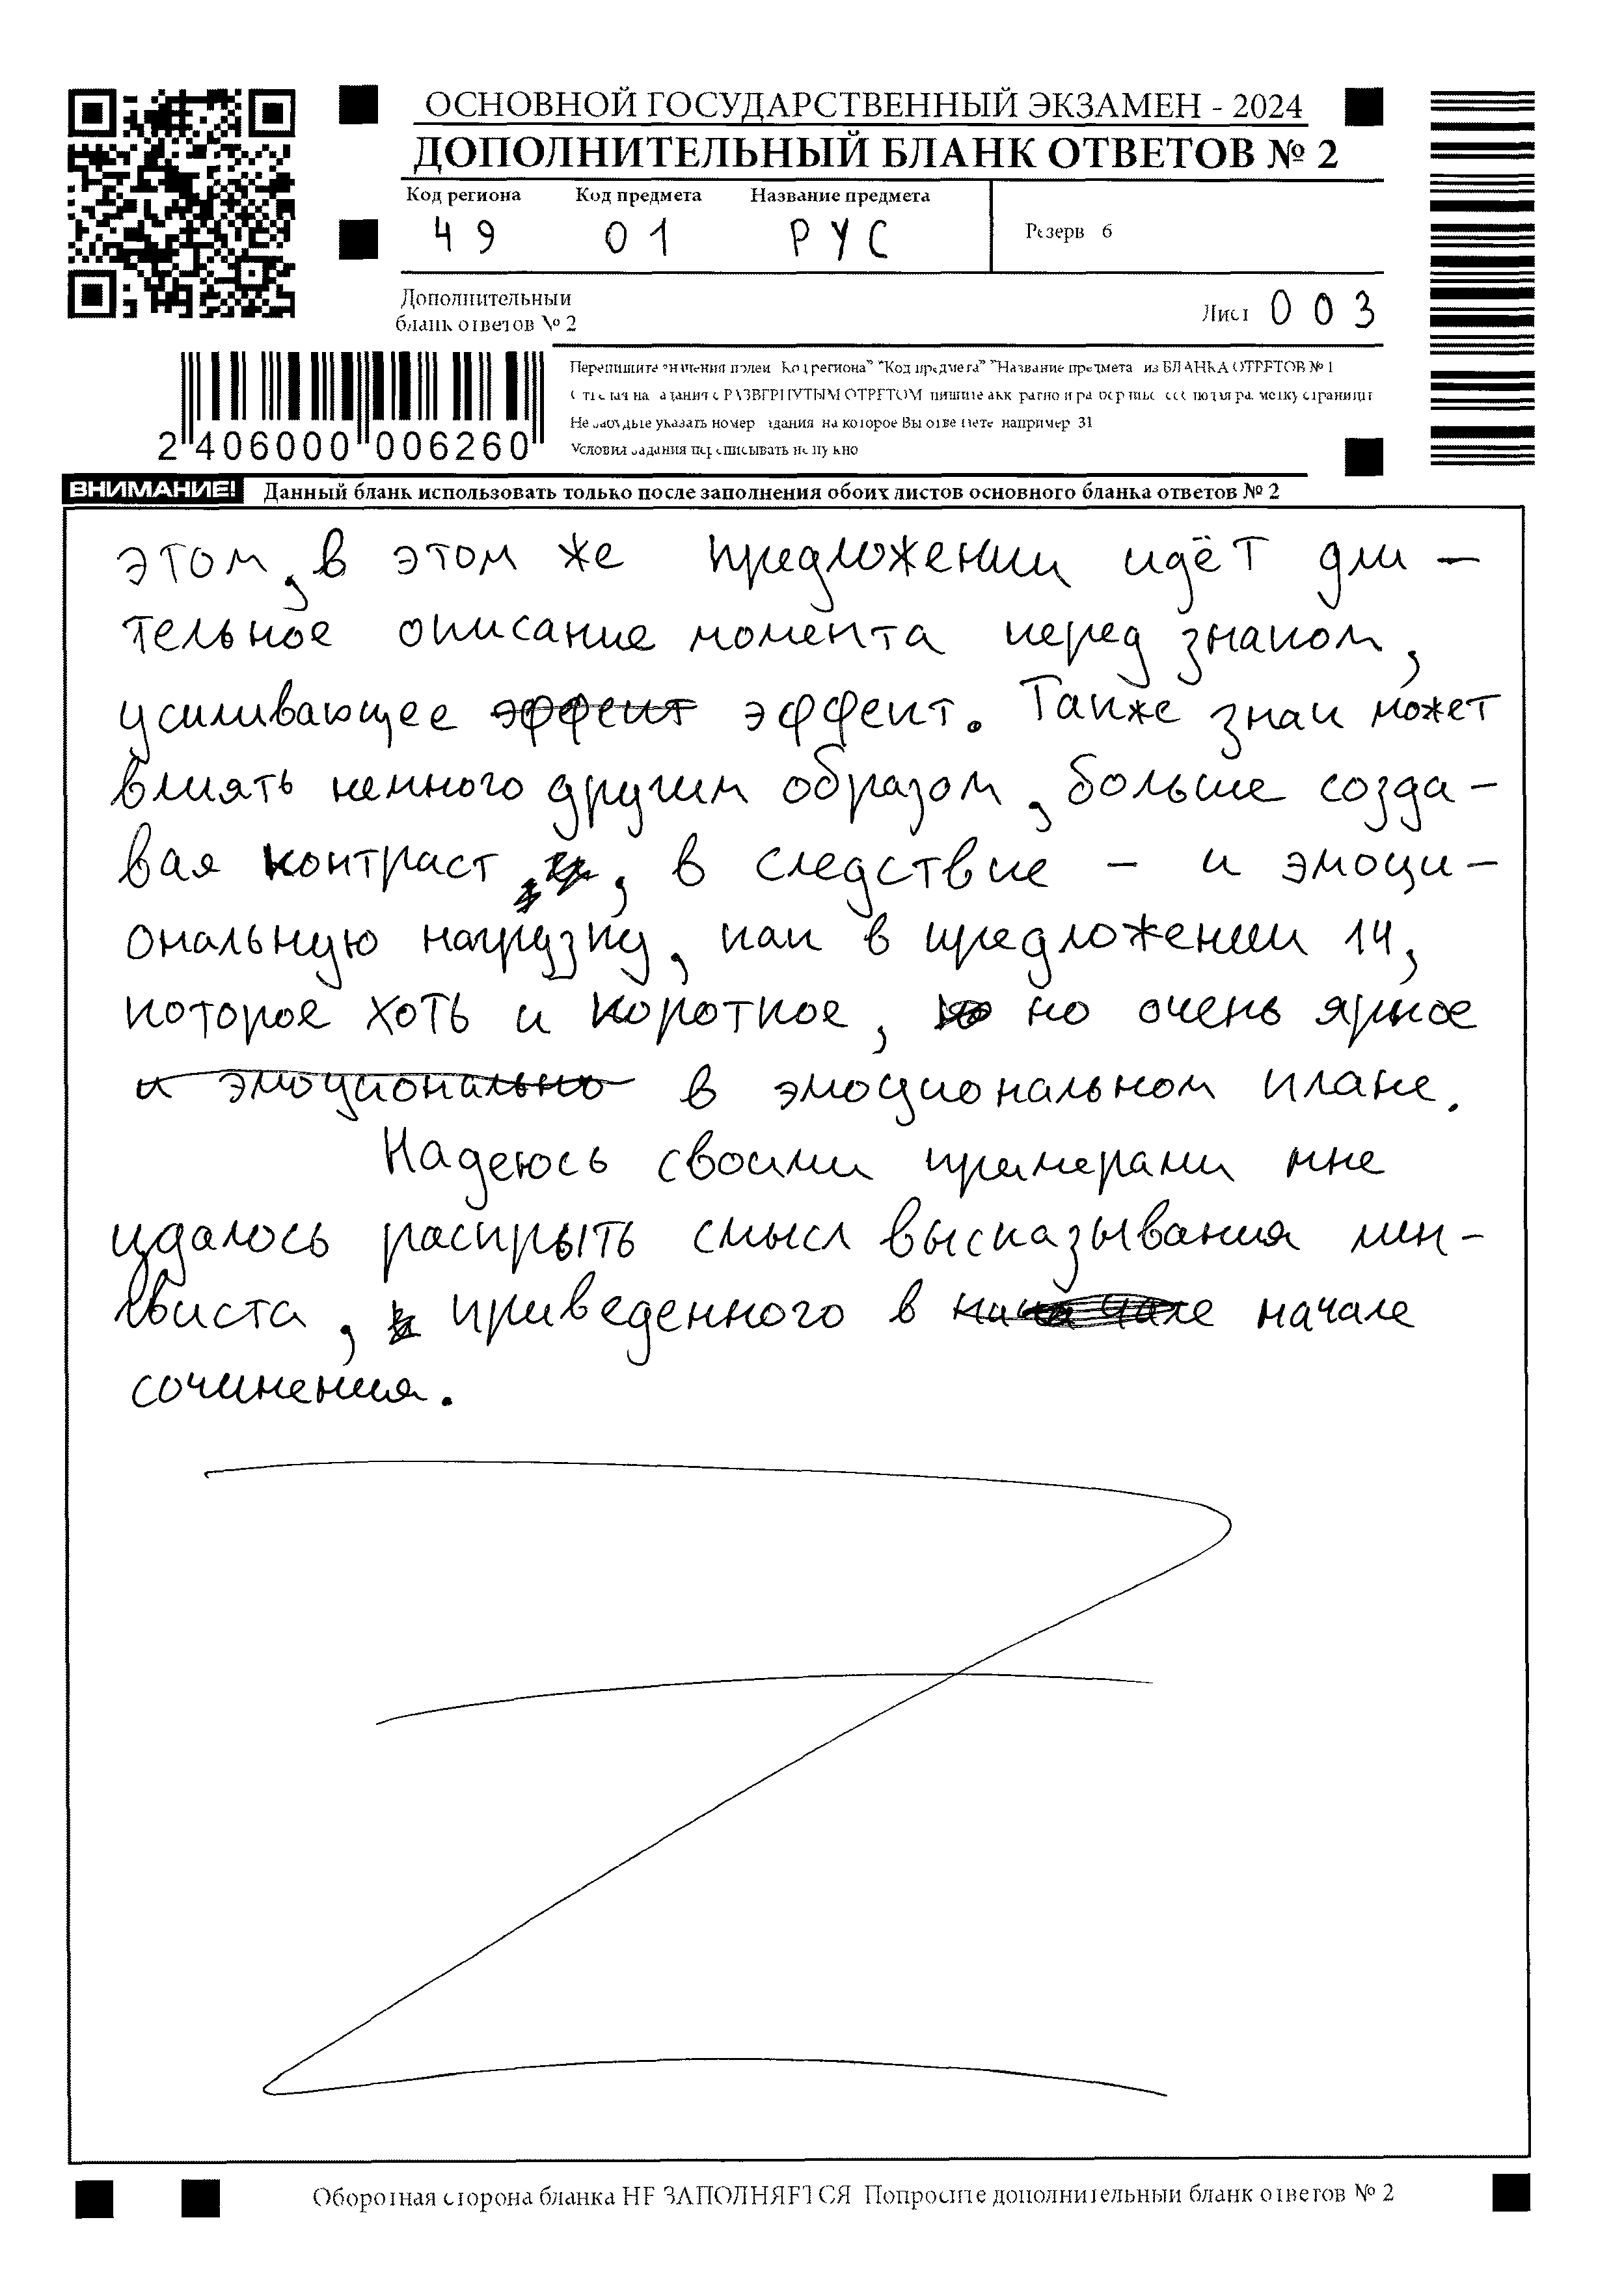 ОСНОВНОЙ ГОСУДАРСТВЕННЫЙ ЭКЗАМЕН - 2024
ДОПОЛНИТЕЛЬНЫЙ БЛАНК ОТВЕТОВ № 2
Код региона Код предмета Название предмета
49 01 РУС
Резерв 6
Дополнительный
бланк ответов № 2
Лист 003
Перепишите значения полей "Код региона" "Код предмета" "Название предмета" из БЛАНКА ОТВЕТОВ № 1
РАЗВЕРНУТЫМ ОТВЕТОМ пишите
Не забудьте указать номер задания на которое Вы отвечаете например 31
Условия задания переписывать не нужно
2 406000 006260
ВНИМАНИЕ! Данный бланк использовать только после заполнения обоих листов основного бланка ответов № 2
этом, в этом же предложении идёт дли-
тельное описание момента перед знаком,
усиливающее эффект эффект. Также знак может
влиять немного другим образом, больше созда-
вая контраст, в следствие - и эмоци-
ональную нагрузку, как в предложении 14,
которое хоть и короткое, но но очень яркое
и эмоционально в эмоциональном плане.
Надеюсь своими примерами мне
удалось раскрыть смысл высказывания лин-
гвиста, приведенного в начале
сочинения.
Оборотная сторона бланка НЕ ЗАПОЛНЯЕТСЯ Попросите дополнительный бланк ответов № 2